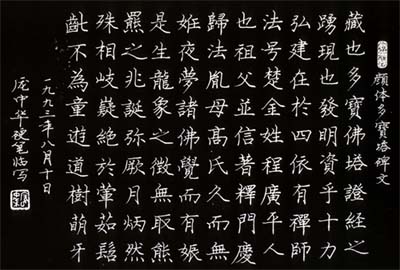 顏体多寶塔碑文
藏也多寶佛塔證經之
踴現也發明資乎十力
弘建在於四依有禪師
法号楚金姓程廣平人
也祖父並信著釋門慶
歸法胤母髙氏久而無
姙夜夢諸佛覺而有娠
是生龍象之徵無取熊
羆之兆誕弥厥月炳然
殊相岐嶷絕於葷茹髫
齔不為童遊道樹萌牙
一九九三年八月十日
庞中华硬笔临写